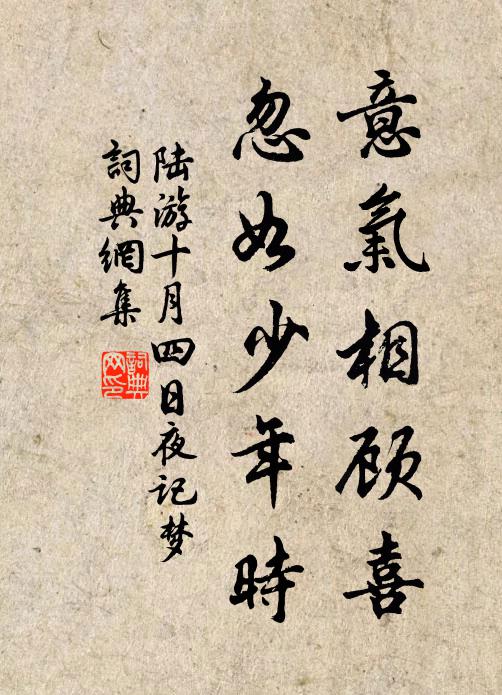 意氣相顾喜
忽如少年時
陆游十月四日夜记梦
詞典網集
詞典网印